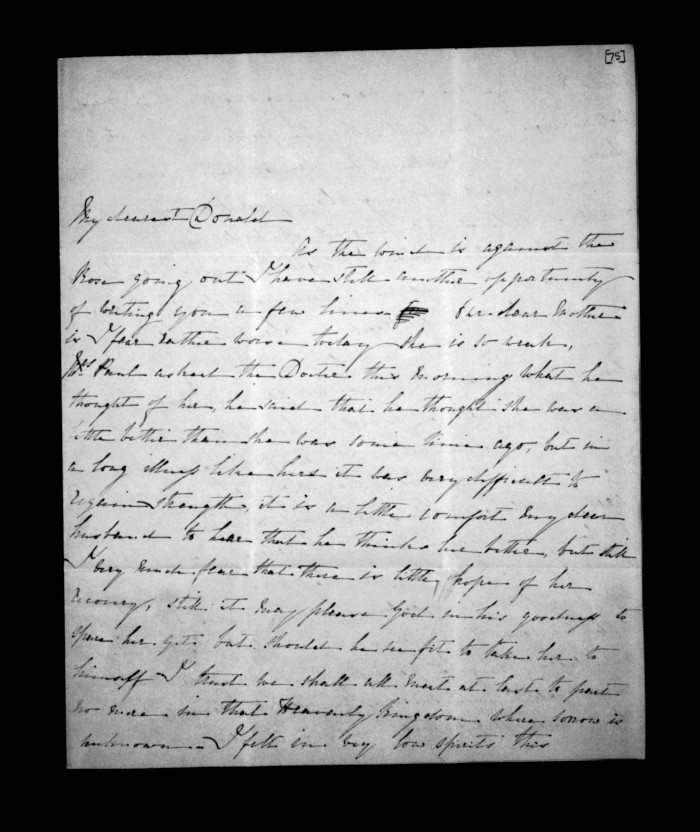 [75]
My dearest Donald
As the wind is against the
Rose going out I have still another opportunity
of writing you a few lines our dear Mother
is I fear rather worse today she is so weak,
Mrs Paul asked the Doctor this morning what he
thought of her, he said that he thought she was a
little better than she was some time ago, but in
a long illness like hers it was very difficult to
regain strength, it is a little comfort my dear
husband to hear that he thinks her better, but still
I very much fear that there is little hope of her
recovery, still it may please God in his goodness to
spare her yet but should he see fit to take her to
himself I trust we shall all meet at last to part
no more in that Heavenly Kingdom where sorrow is
unknown - I felt in very low spirits this